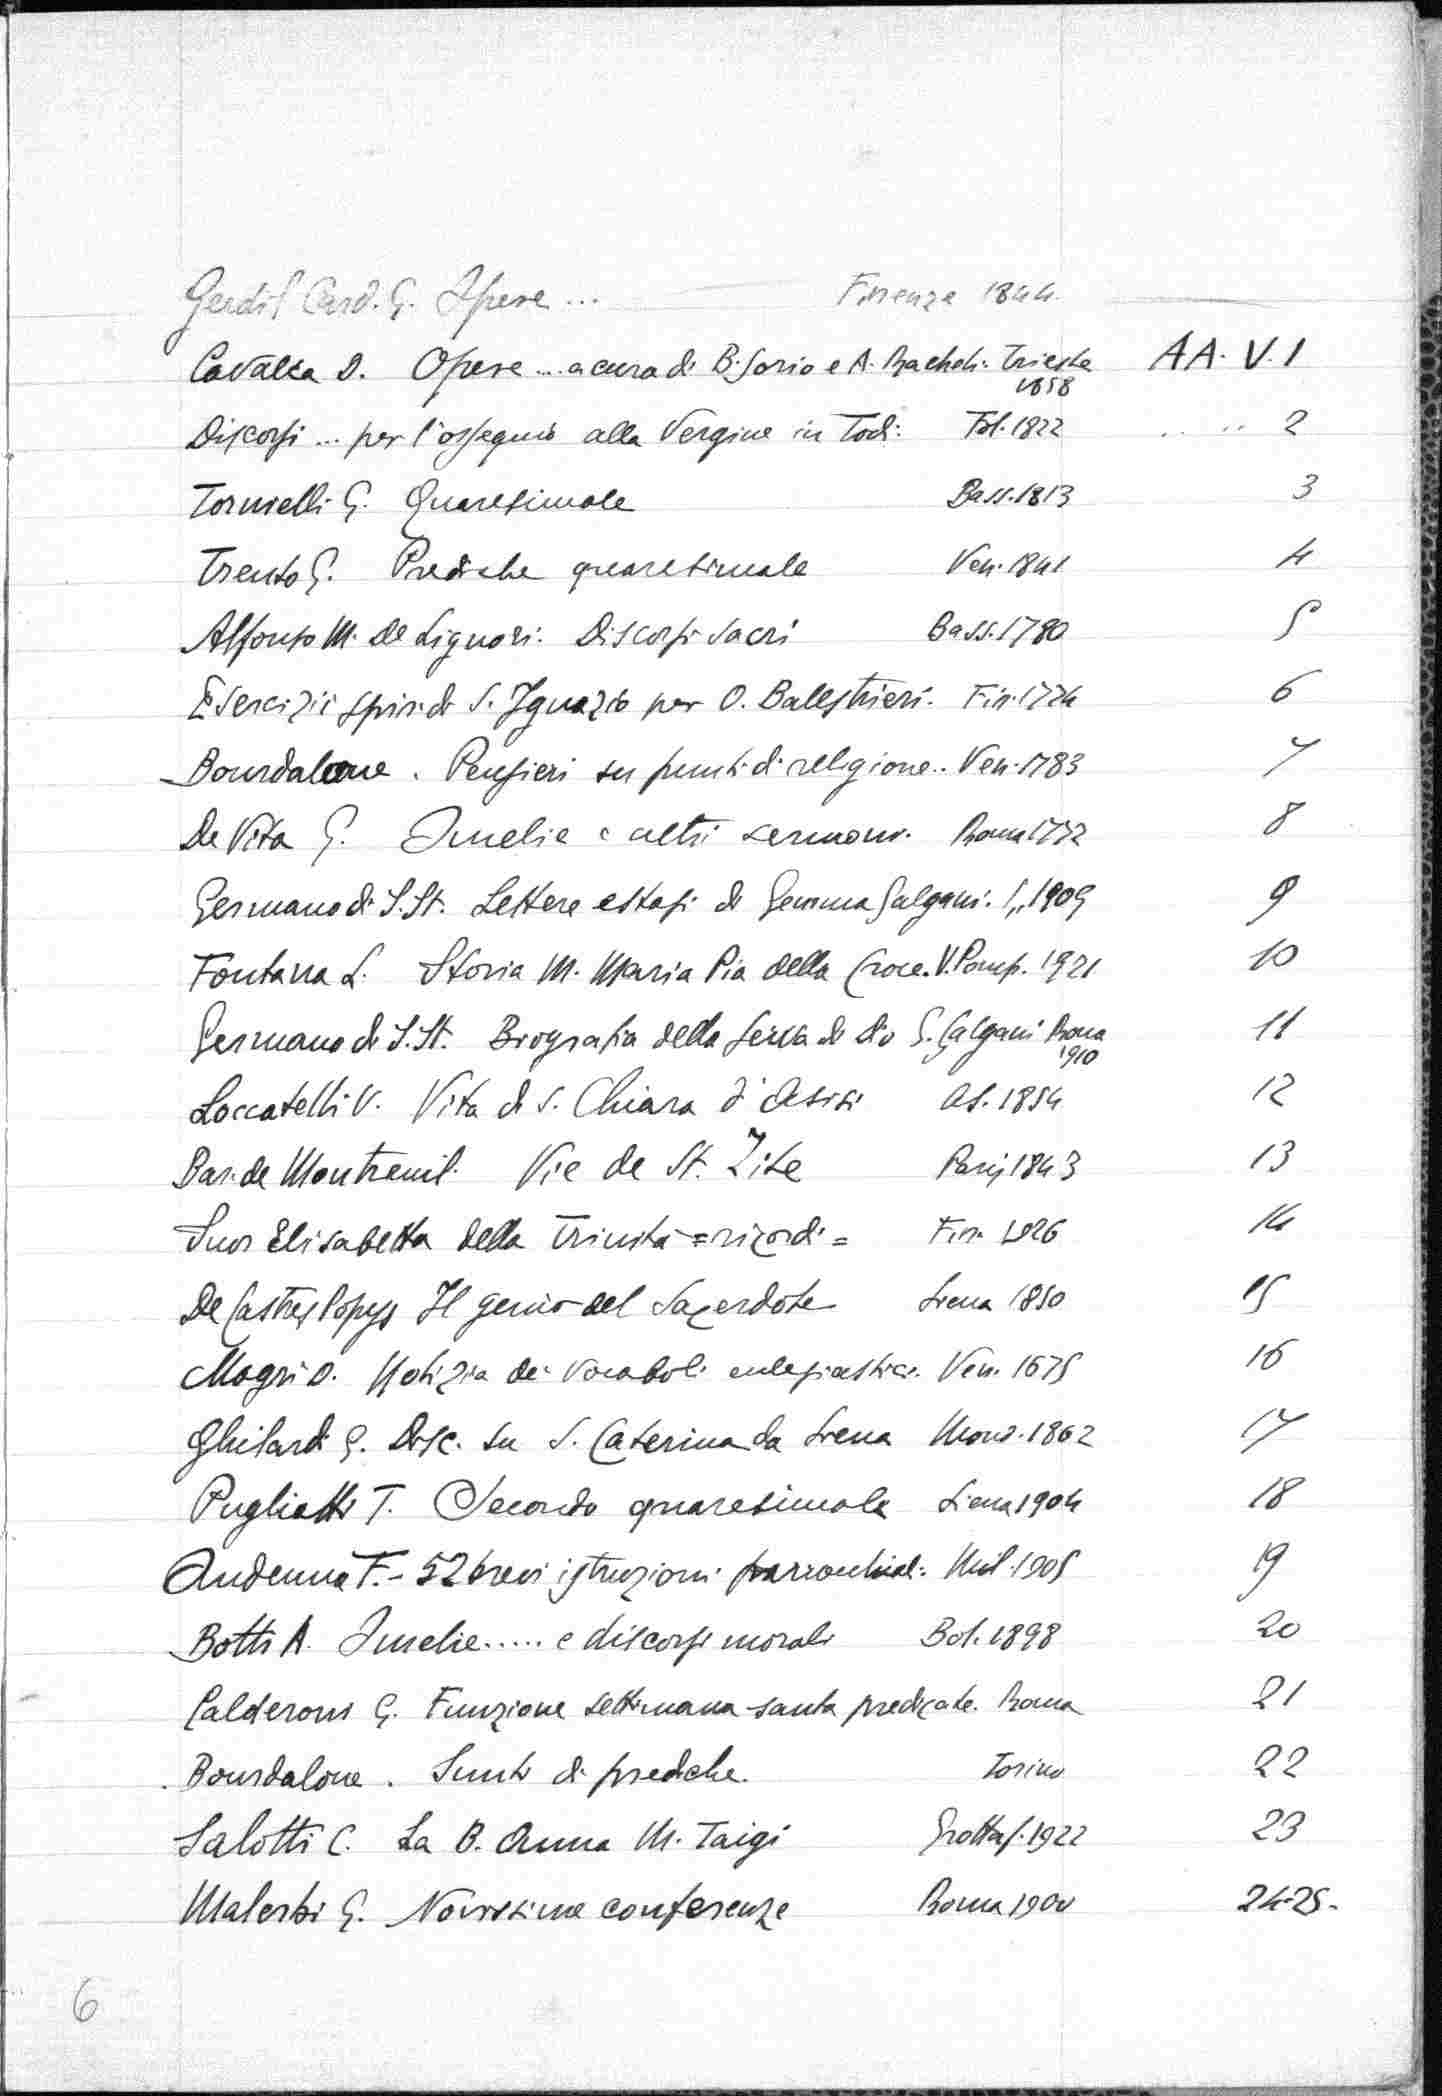 Gerdil Card. G. Opere ... Firenze 1844.
Cavalca D. Opere ... a cura di B. Sorio e A. Racheli. Trieste AA. V. 1
1858
Discorsi ... per l'ossequio alla Vergine in Todi. Fol. 1822 .. .. 2
Tornielli G. Quaresimale Bass. 1813 3
Trento G. Prediche quaresimale Ven. 1841 4
Alfonso M. de Liguori. Discorsi sacri Bass. 1780 5
Esercizii spir. di S. Ignazio per O. Balestrieri. Fir. 1724 6
Bourdaloue. Pensieri su punti di religione.. Ven. 1783 7
De Vita G. Omelie e altri sermoni. Roma 1772 8
Germano di S. St. Lettere estasi di Gemma Galgani. 1909 9
Fontana L. Storia M. Maria Pia della Croce. V. Pomp. 1921 10
Germano di S. St. Biografia della serva di Dio G. Galgani Roma 11
1910
Loccatelli V. Vita di S. Chiara d'Assisi As. 1854 12
Bar. de Montreuil. Vie de St. Zite Paris 1843 13
Suor Elisabetta della Trinità = ricordi = Fir. 1926 14
De Castres Il genio del Sacerdote Siena 1850 15
Magri D. Notizia de' vocaboli eclesiastici. Ven. 1675 16
Ghilardi G. Disc. su S. Caterina da Siena Mond. 1862 17
Pugliatti T. Secondo quaresimale Siena 1904 18
Andenna F. - 52 brevi istruzioni parrocchiali. Mil. 1905 19
Botti A. Omelie ..... e discorsi morali Bol. 1898 20
Calderoni G. Funzione settimana santa predicate. Roma 21
Bourdaloue. Sunti di prediche. Torino 22
Salotti C. La B. Anna M. Taigi Grottaf. 1922 23
Malerbi G. Novissime conferenze Roma 1900 24-25.
6